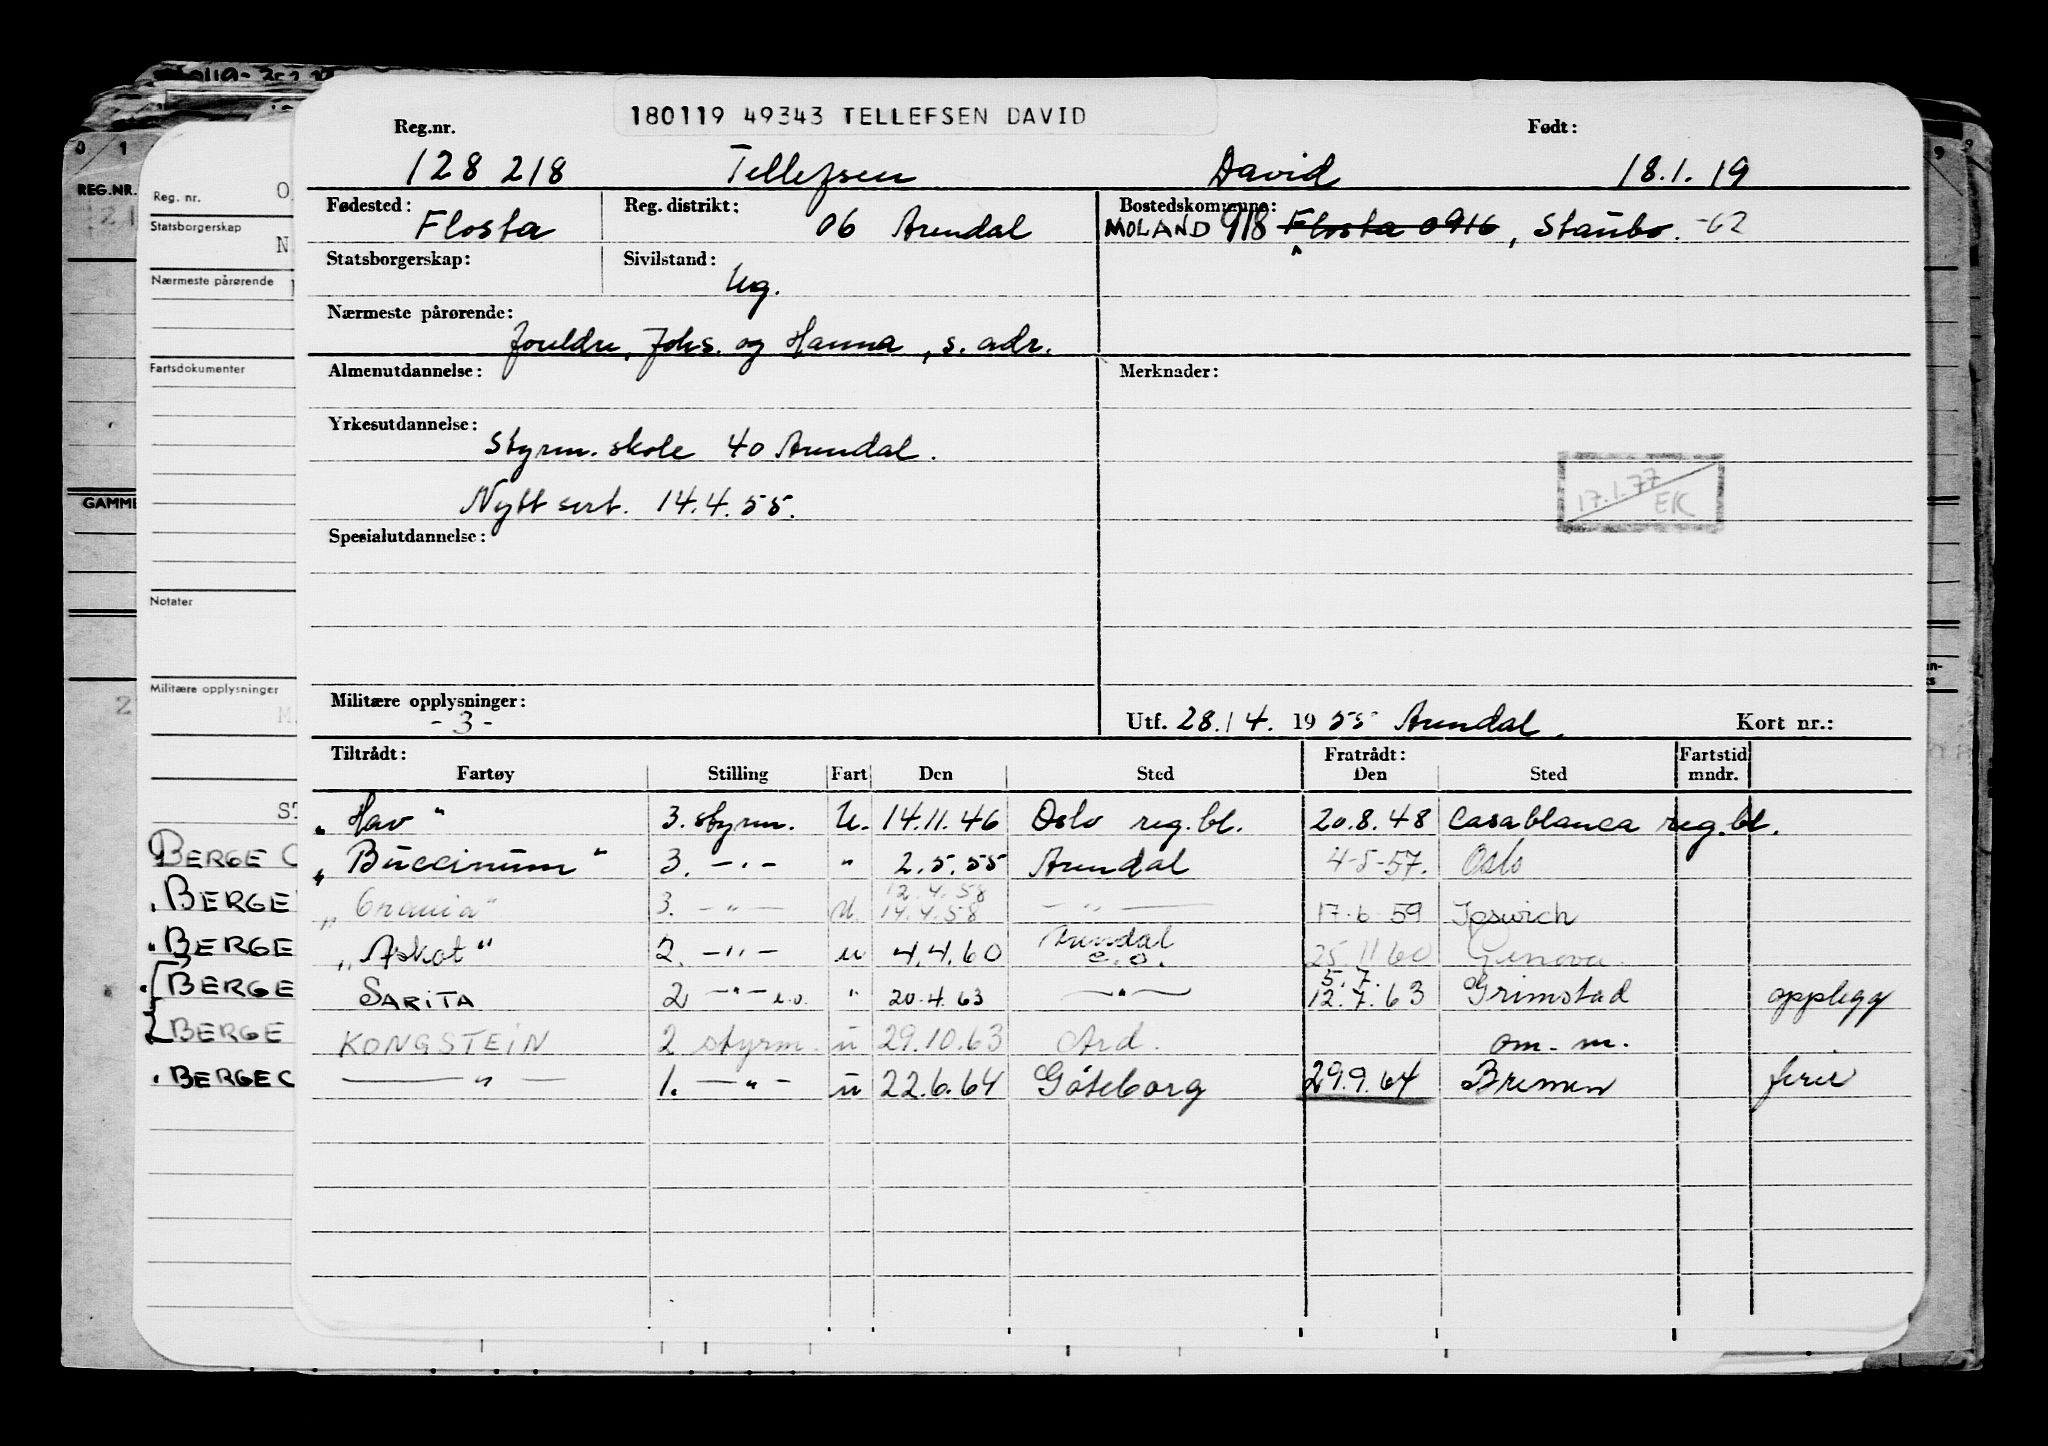 180119 49343 TELLEFSEN DAVID
Reg.nr. Født:
128 218 Tellefsen David 18.1.19
Fødested: Reg. distrikt: Bostedskommune:
Flosta 06 Arendal MOLAND 918 Flosta 0916, Staubo. -62
Statsborgerskap: Sivilstand:
Ug.
Nærmeste pårørende:
foreldre, Johs. og Hanna, s. adr.
Almenutdannelse: Merknader:
Yrkesutdannelse:
Styrm. skole 40 Arendal.
17.1.77
EK
Nytt sert. 14.4.55.
Spesialutdannelse:
Militære opplysninger:
- 3 -
Utf. 28./4. 1955 Arendal. Kort nr.:
Tiltrådt: Fratrådt: Fartstid
Fartøy Stilling Fart Den Sted Den Sted mndr.
"Hav" 3. styrm. U. 14.11.46 Oslo reg.bl. 20.8.48 Casablanca reg.bl.
"Buccinum" 3. -"- " 2.5.55 Arendal 4-5-57. Oslo
12.4.58
3. -"- U. 14.4.58 -"- 17.6.59 Ipswich
Arendal
"Askot" 2. -"- u 4.4.60 e.o. 25.11.60 Genova.
5.7.
SARITA 2 -"- e.o. " 20.4.63 -"- 12.7.63 Grimstad opplegg
KONGSTEIN 2 styrm. u 29.10.63 Ard. om. m.
-"- 1. -"- u 22.6.64 Göteborg 29.9.64 Bremen ferie
Reg. nr. O
Statsborgerskap
N
Nærmeste pårørende
Fartsdokumenter
Notater
Militære opplysninger
M
ST
BERGE C
BERGE
BERGE
BERGE
BERGE
BERGE C
0 1
REG.NR.
GAMME
2
9